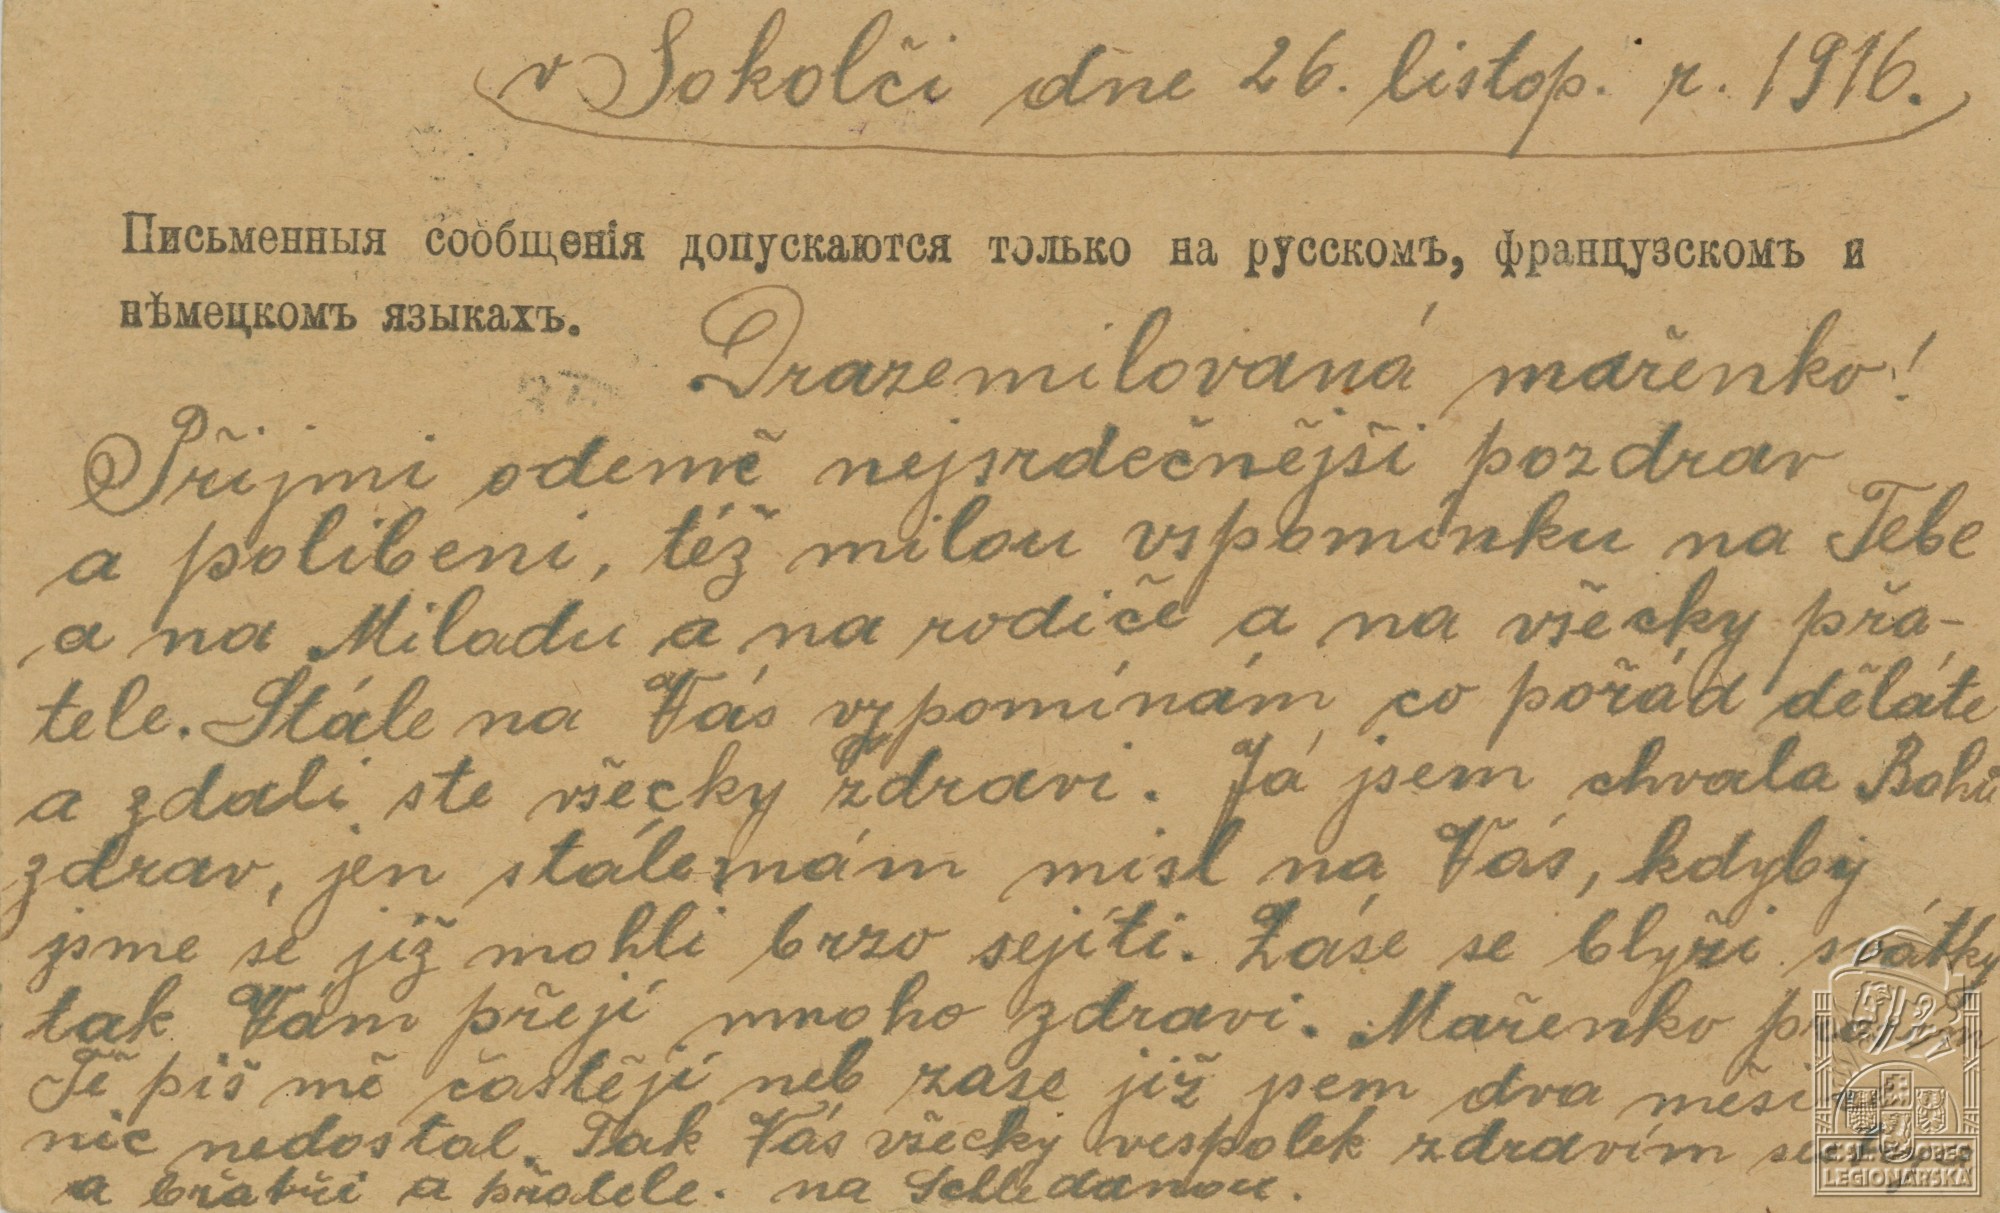 v Sokolči dne 26. listop. r. 1916.
Письменныя сообщенія допускаются только на русскомъ, французскомъ и
нѣмецкомъ языкахъ.
Drazemilovaná mařenko!
Přijmi odemě nejsrdečnějši pozdrav
a polibeni, též milou vspomínku na Tebe
a na Miladu a na rodiče a na všecky přa-
tele. Stále na Vás vzpomínám co pořád děláte
a zdali ste všecky zdravi. Já jsem chvala Bohu
zdrav, jen stále mám misl na Vás, kdyby
jsme se již mohli brzo sejíti. Záse se blyři svátky
tak Vám přejí mnoho zdravi. Mařenko prosím
Tě piš mě častěji neb zase již jsem dva
nic nedostal. Tak Vás všecky vespolek zdravím
a břatři a přatele. na Schledanou.
Č. SL. OBEC
LEGIONÁŘSKÁ